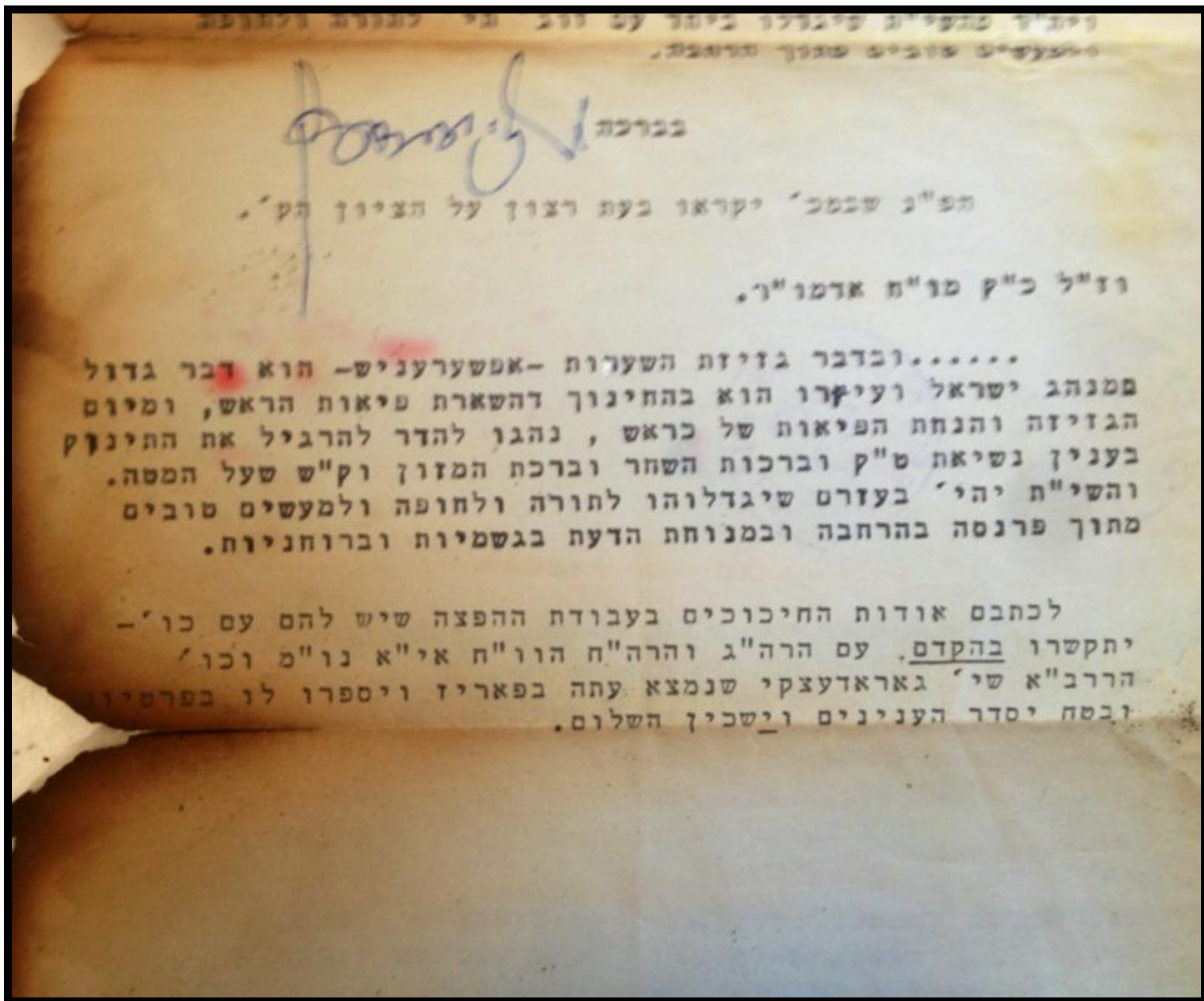 ויה"ר מהשי"ת שיגדלו ביחד עם זוג' תי' לתורה ולחופה
ולמעשים טובים מתוך הרחבה.
בברכה
הפ"נ שבמכ' יקראו בעת רצון על הציון הק'.
וז"ל כ"ק מו"ח אדמו"ר.
......ובדבר גזיזת השערות -אפשערעניש- הוא דבר גדול
במנהג ישראל ועיקרו הוא בהחינוך דהשארת פיאות הראש, ומיום
הגזיזה והנחת הפיאות של כראש , נהגו להדר להרגיל את התינוק
בענין נשיאת ט"ק וברכות השחר וברכת המזון וק"ש שעל המטה.
והשי"ת יהי' בעזרם שיגדלוהו לתורה ולחופה ולמעשים טובים
מתוך פרנסה בהרחבה ובמנוחת הדעת בגשמיות וברוחניות.
לכתבם אודות החיכוכים בעבודת ההפצה שיש להם עם כו'-
יתקשרו בהקדם. עם הרה"ג והרה"ח הוו"ח אי"א נו"מ וכו'
הררב"א שי' גאראדעצקי שנמצא עתה בפאריז ויספרו לו בפרטיות
ובטח יסדר הענינים וישכין השלום.